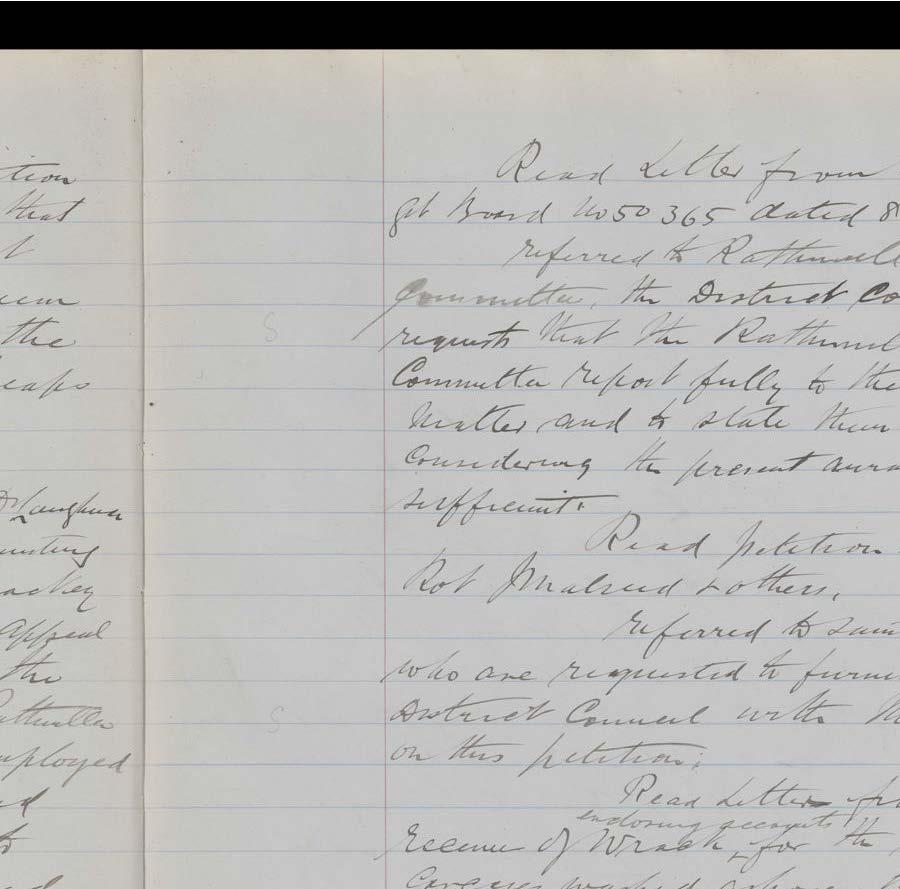 tion
that
t
the
eaps
unting
ackey
Appeal
the
ployed
ed
to
S
S
Read Letter from
gt Board No 50 365 dated 8
referred to Rathmull
Committee, the District Co
requests that the Rathmul
Committee report fully to the
Matter and to state their
Considering the present
sufficient.
Read petition
Robt & others,
referred to same
who are requested to furni
District Council with
on this petition;
Read Letter fr
enclosing accounts
Receiver of Wreck, for the
Carcases washed ashore